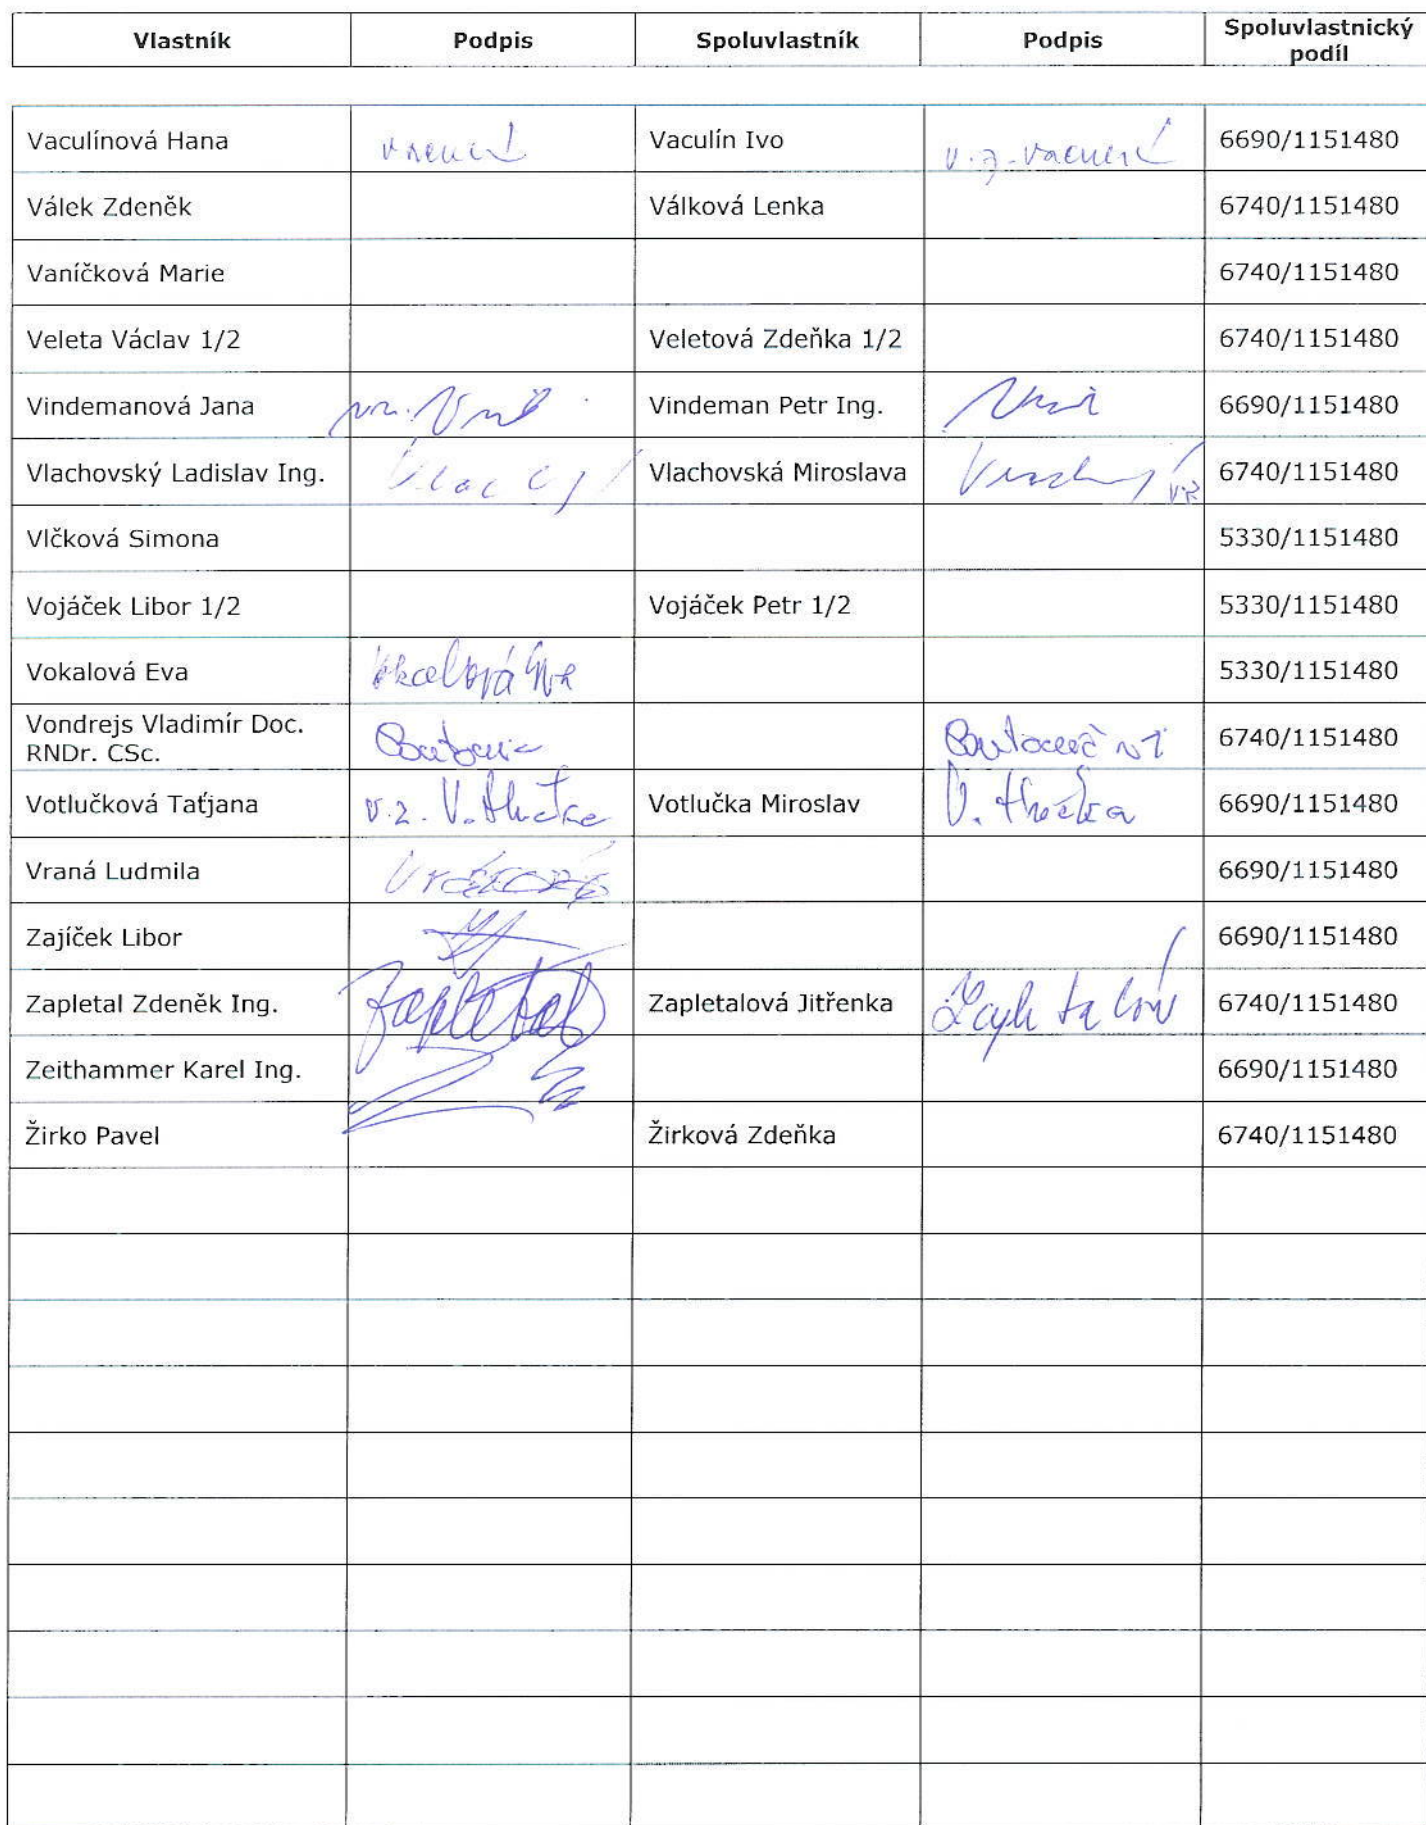 Vlastník Podpis Spoluvlastník Podpis Spoluvlastnický
podíl
Vaculínová Hana Vaculín Ivo v.z. 6690/1151480
Válek Zdeněk Válková Lenka 6740/1151480
Vaníčková Marie 6740/1151480
Veleta Václav 1/2 Veletová Zdeňka 1/2 6740/1151480
Vindemanová Jana Vindeman Petr Ing. 6690/1151480
Vlachovský Ladislav Ing. Vlachovská Miroslava 6740/1151480
Vlčková Simona 5330/1151480
Vojáček Libor 1/2 Vojáček Petr 1/2 5330/1151480
Vokalová Eva Vokalová Eva 5330/1151480
Vondrejs Vladimír Doc.
RNDr. CSc. 6740/1151480
Votlučková Taťjana v.z. Votlučka Miroslav 6690/1151480
Vraná Ludmila 6690/1151480
Zajíček Libor 6690/1151480
Zapletal Zdeněk Ing. Zapletal Zapletalová Jitřenka 6740/1151480
Zeithammer Karel Ing. 6690/1151480
Žirko Pavel Žirková Zdeňka 6740/1151480